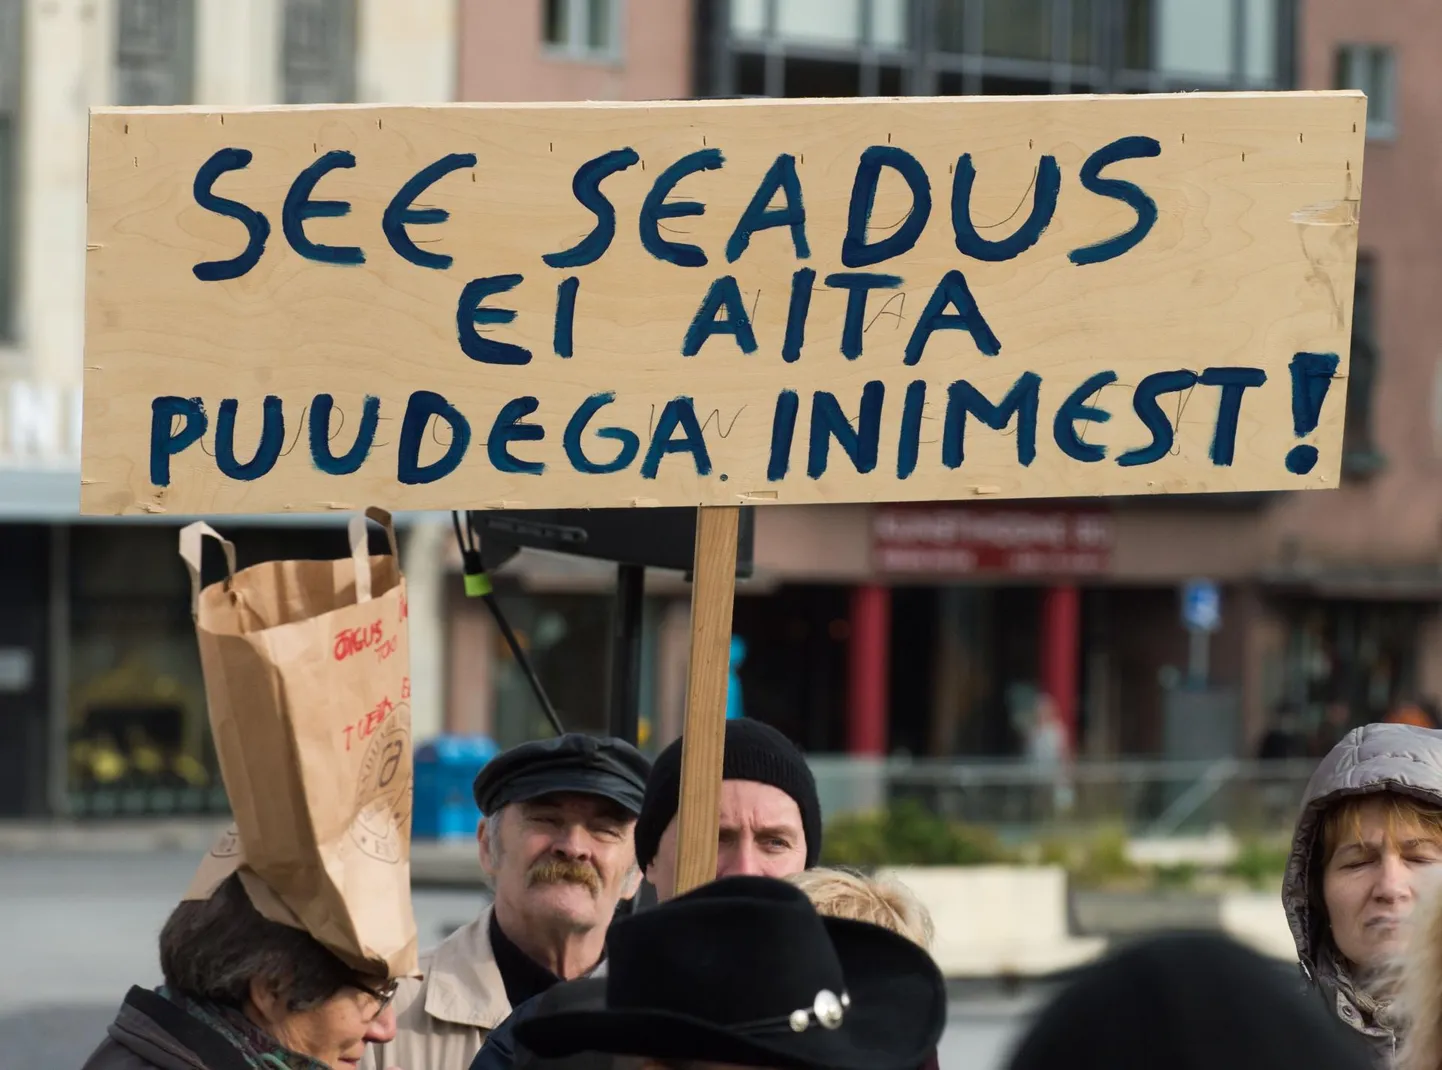 SEE SEADUS
EI AITA
PUUDEGA INIMEST!
ÕIGUS